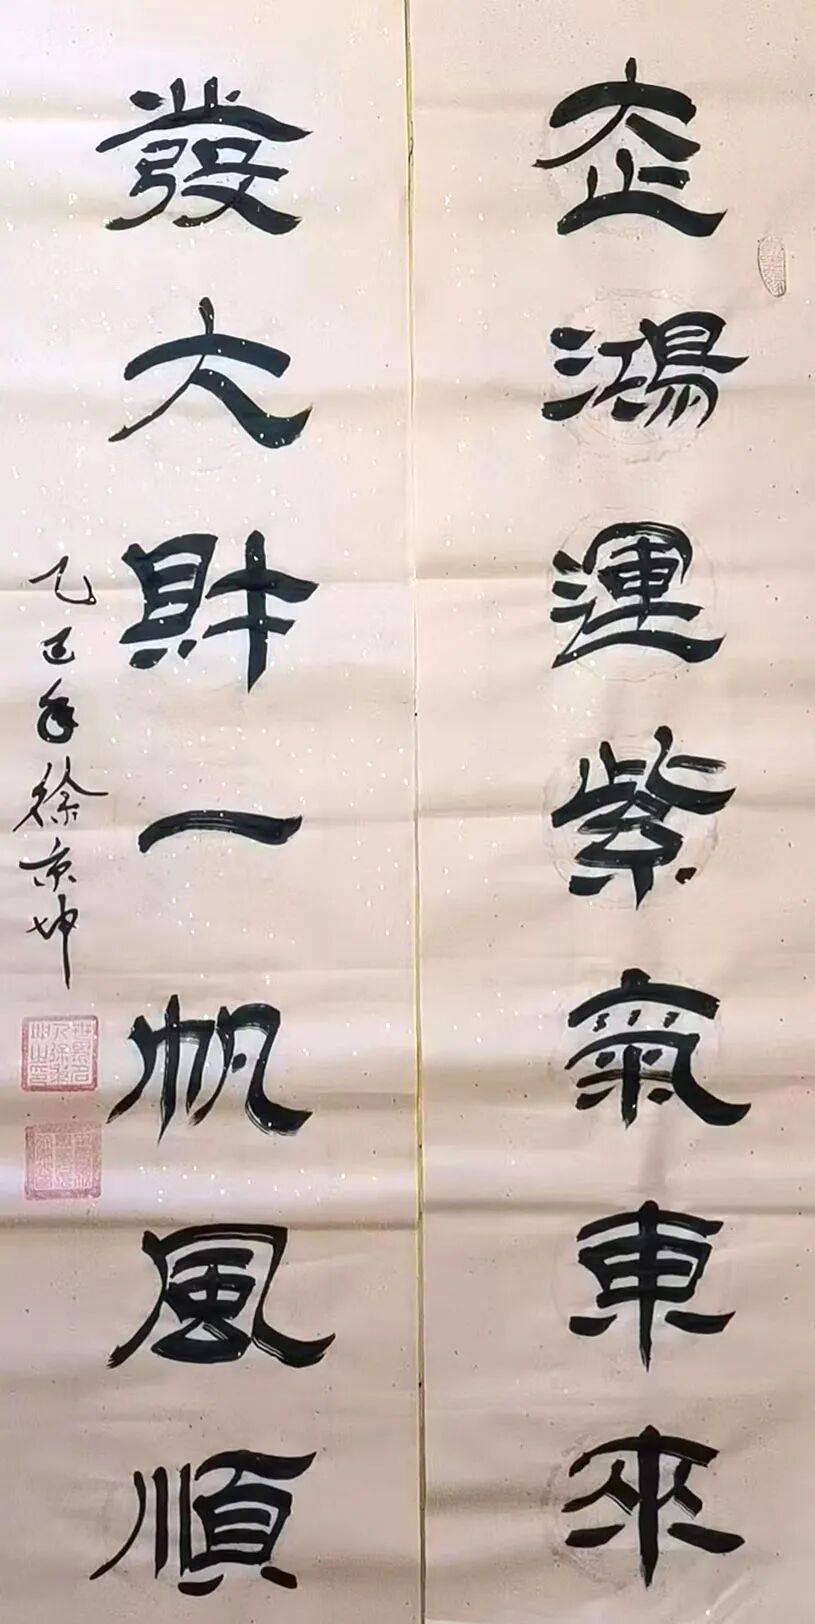 走鴻運紫氣東來
發大財一帆風順
乙巳年徐京坤